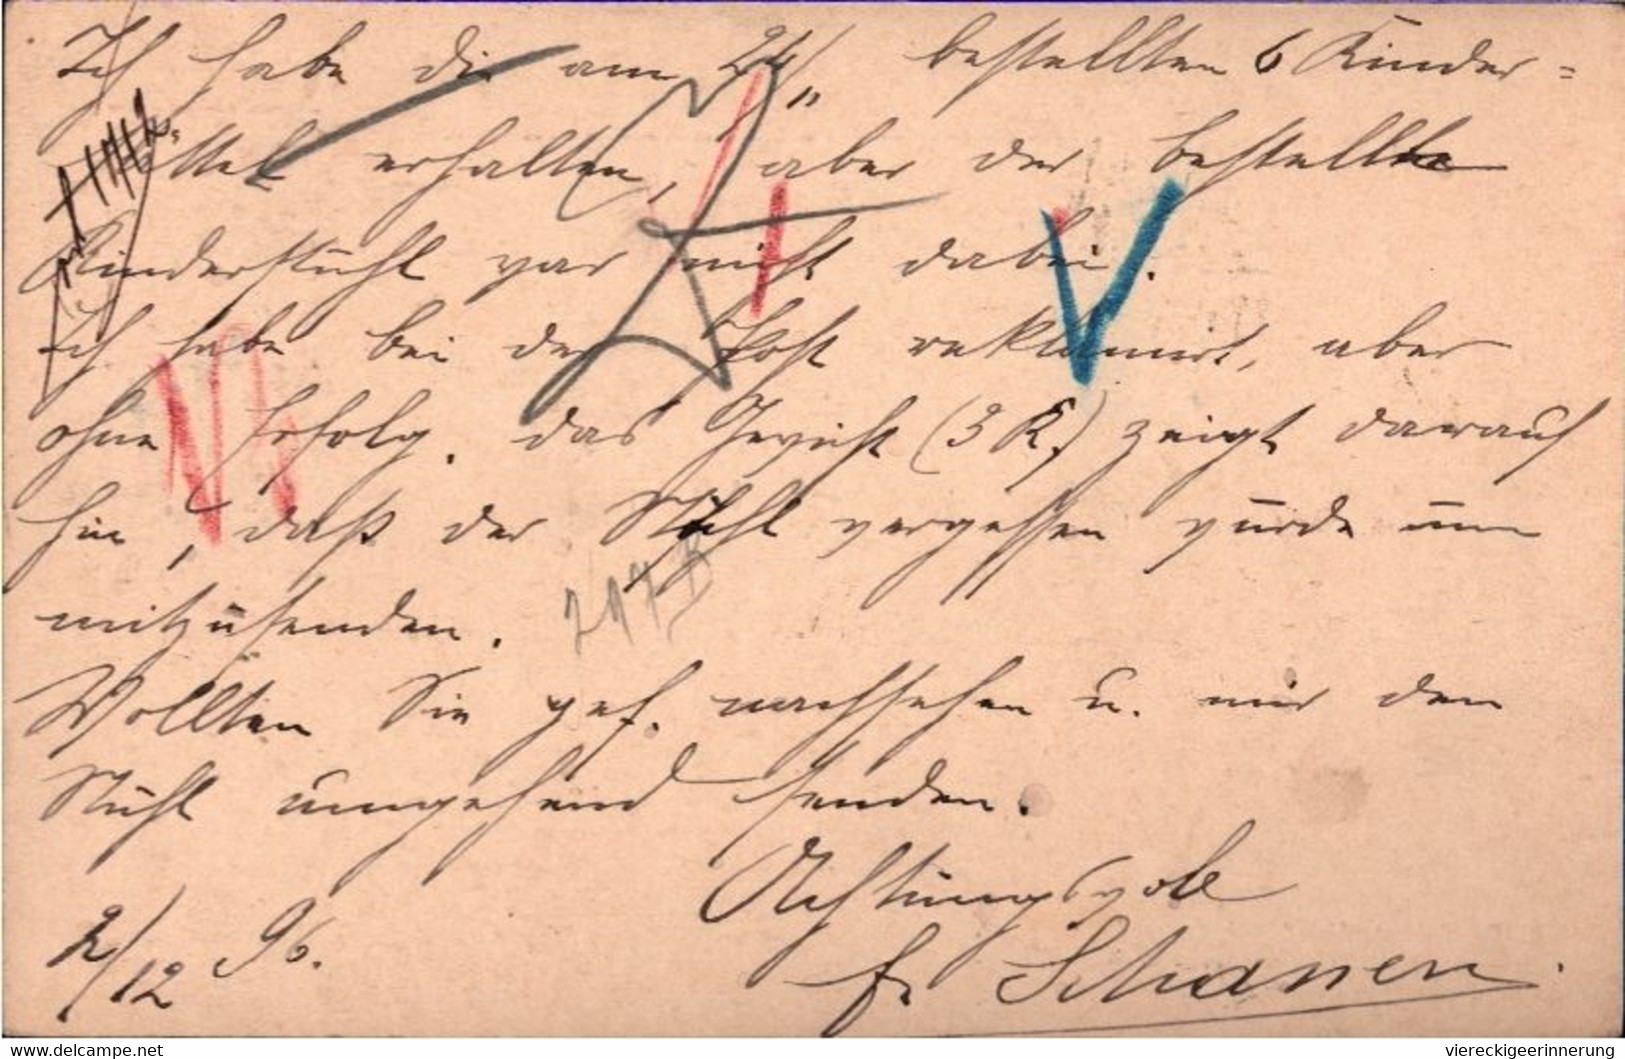 Ich habe die am 24/11 bestellten 6 Kinder=
erhalten, aber der bestellte
Kinderstuhl war nicht dabei.
Ich habe bei der Post reklamirt, aber
ohne Erfolg. das Gewicht (3 K.) zeigt darauf
hin, daß der Stuhl vergessen wurde
mitzusenden.
Wollten Sie gef. nachsehen u. mir den
Stuhl umgehend senden.
Achtungsvoll
2/12 96.
F. Schanen.
www.delcampe.net
viereckigeerinnerung